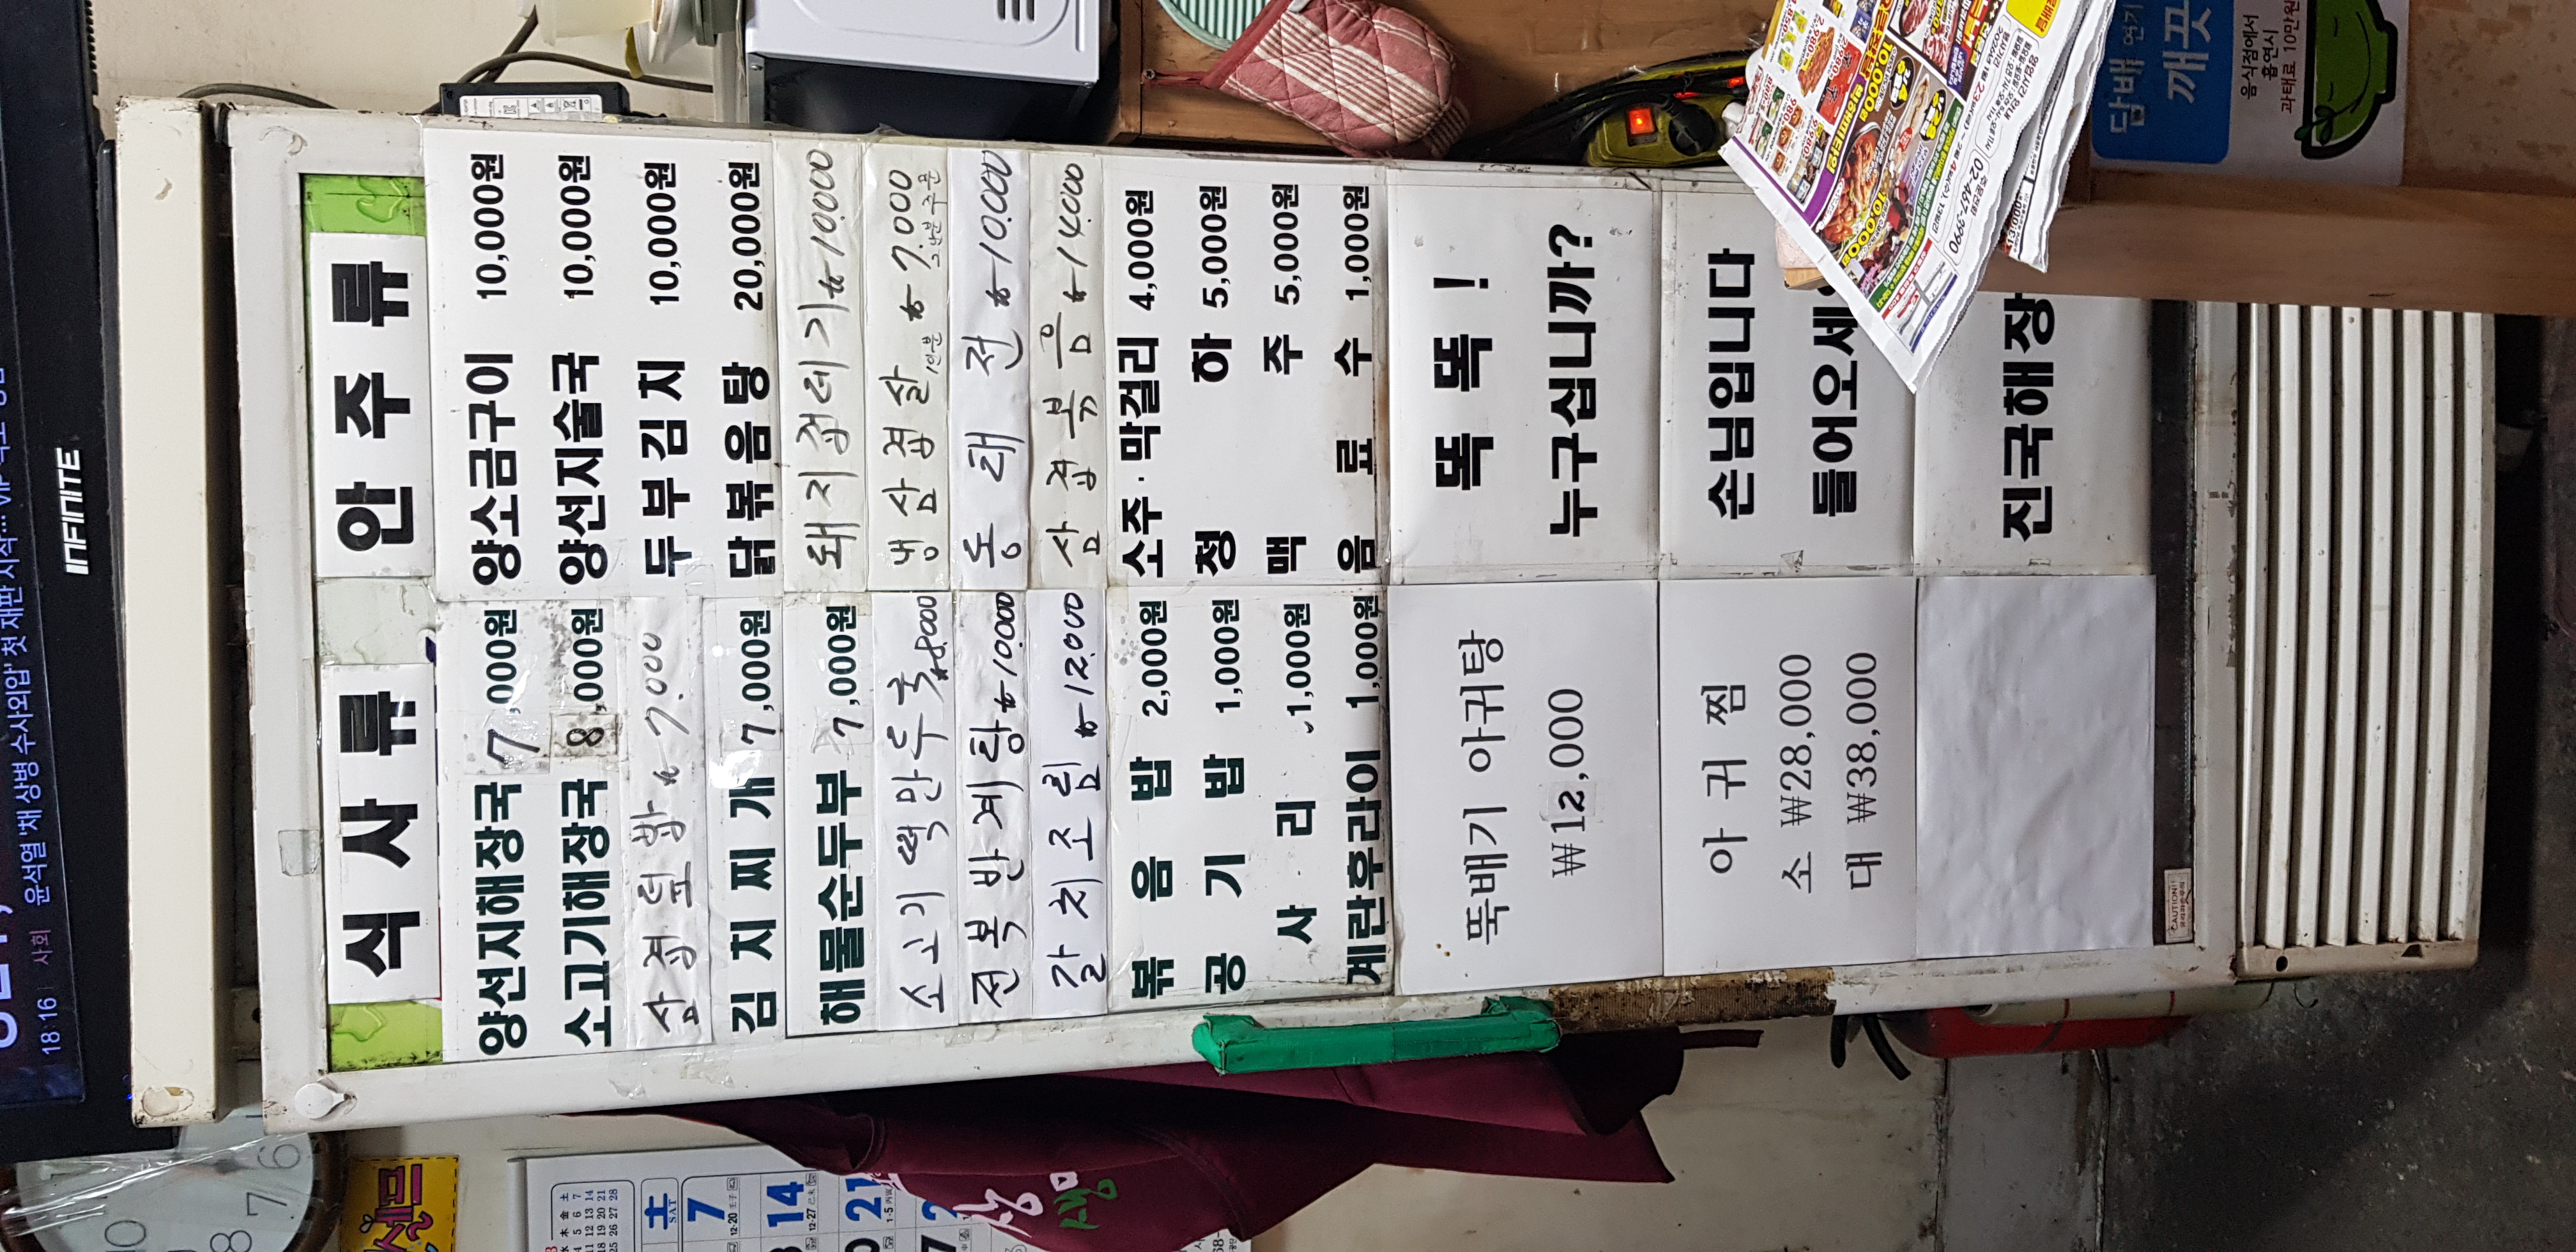 INFINITE
18:16 사회 윤석열 '채상병 수사외압' 첫 재판 시작...
식 사 류
양선지해장국 7,000원
소고기해장국 8,000원
삼겹덮밥 ₩7.000
김 치 찌 개 7,000원
해물순두부 7,000원
소고기떡만두국 ₩8.000
전복반계탕 ₩10.000
갈치조림 ₩12.000
볶 음 밥 2,000원
공 기 밥 1,000원
사 리 1,000원
계란후라이 1,000원
뚝배기 아귀탕
₩12,000
아 귀 찜
소 ₩28,000
대 ₩38,000
안 주 류
양소금구이 10,000원
양선지술국 10,000원
두 부 김 치 10,000원
닭 볶 음 탕 20,000원
돼지껍데기 ₩10.000
냉삼겹살 1인분 ₩7.000
동 태 전 ₩10.000
삼겹볶음 ₩14.000
소주 · 막걸리 4,000원
청 하 5,000원
맥 주 5,000원
음 료 수 1,000원
똑 똑 !
누구십니까?
손님입니다
들어오세
진국해장
CAUTION!
담배 연기
깨끗
음식점에서
흡연시
과태료 10만원
02-467-9990
10,000원
土
SAT
7
14
21